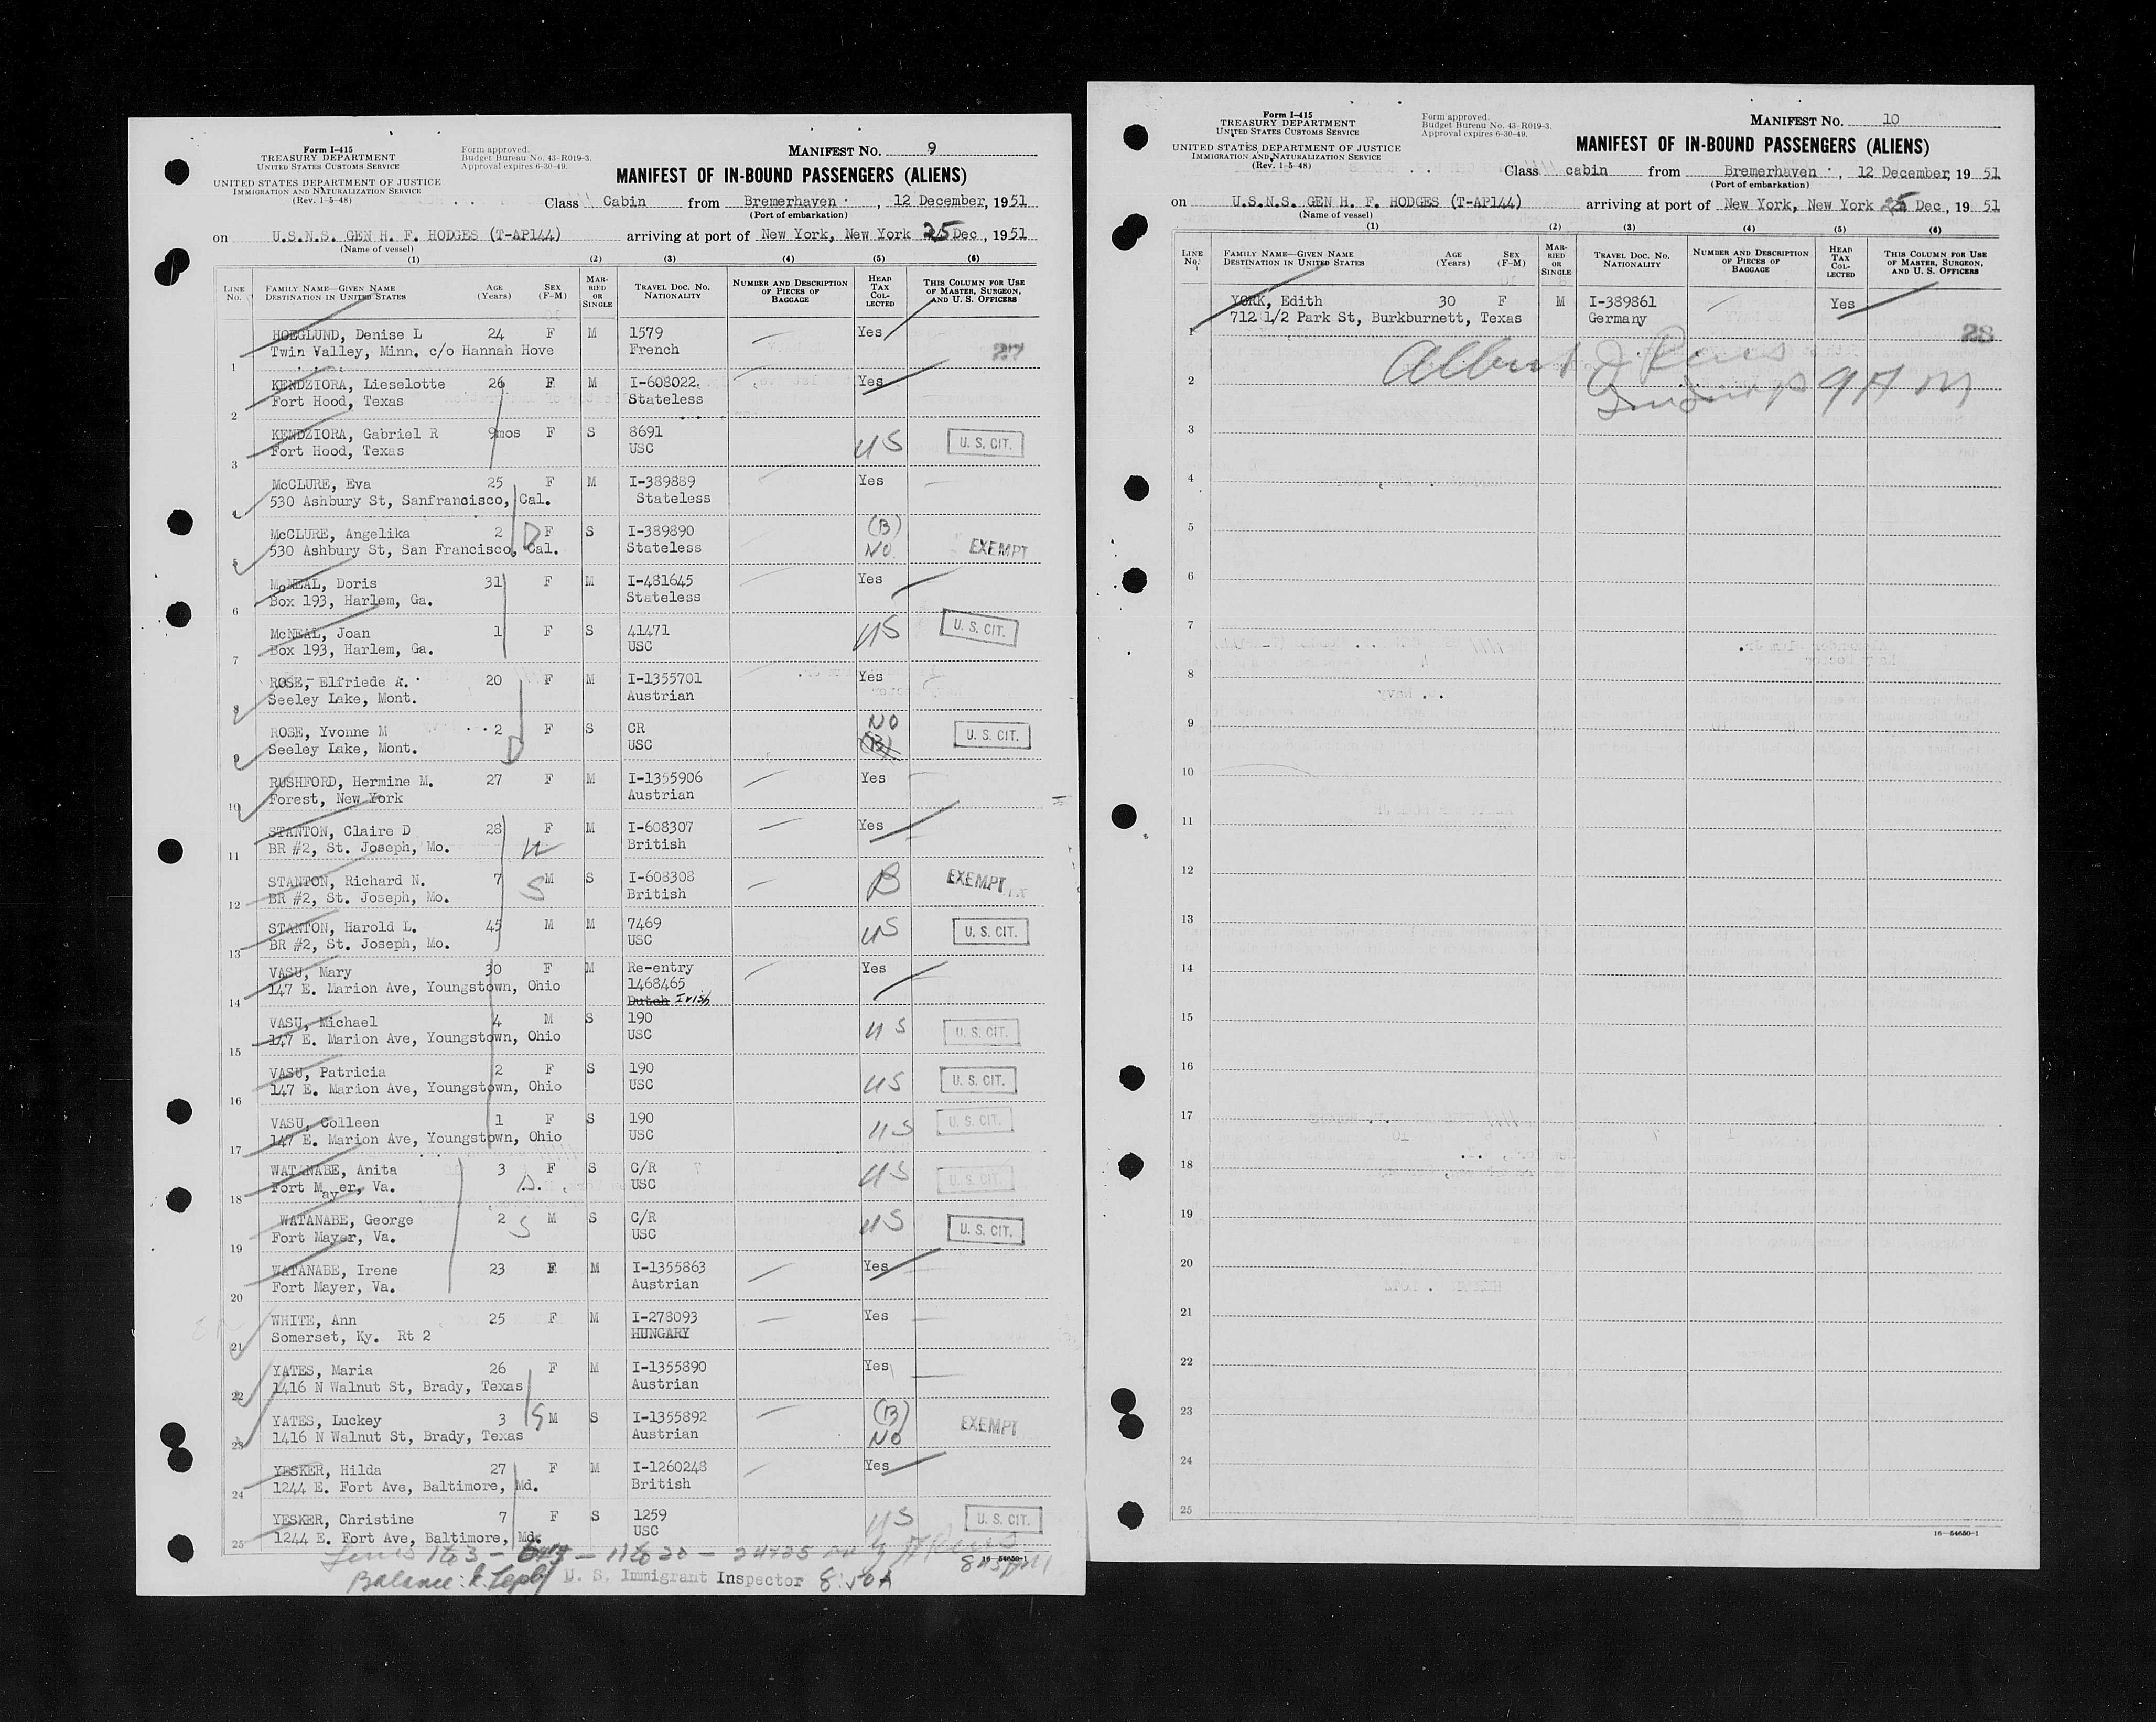 Form I-415
TREASURY DEPARTMENT
UNITED STATES CUSTOMS SERVICE
UNITED STATES DEPARTMENT OF JUSTICE
IMMIGRATION AND NATURALIZATION SERVICE
(Rev. 1-5-48)
Form approved.
Budget Bureau No. 43-R019-3.
Approval expires 6-30-49.
MANIFEST NO. 9
MANIFEST OF IN-BOUND PASSENGERS (ALIENS)
Class Cabin from Bremerhaven, 12 December, 1951
(Port of embarkation)
on U.S.N.S. GEN H. F. HODGES (T-AP144) arriving at port of New York, New York 25 Dec, 1951
(Name of vessel)
(1) (2) (3) (4) (5) (6)
LINE No. FAMILY NAME—GIVEN NAME DESTINATION IN UNITED STATES AGE (Years) SEX (F-M) MARRIED OR SINGLE TRAVEL DOC. NO. NATIONALITY NUMBER AND DESCRIPTION OF PIECES OF BAGGAGE HEAD TAX COLLECTED THIS COLUMN FOR USE OF MASTER, SURGEON, AND U. S. OFFICERS
HOEGLUND, Denise L 24 F M 1579 Yes
1 Twin Valley, Minn. c/o Hannah Hove French 27
KENDZIORA, Lieselotte 26 F M I-608022 Yes
2 Fort Hood, Texas Stateless
KENDZIORA, Gabriel R 9mos F S 8691 US U. S. CIT.
3 Fort Hood, Texas USC
McCLURE, Eva 25 F M I-389889 Yes
4 530 Ashbury St, Sanfrancisco, Cal. Stateless
McCLURE, Angelika 2 D F S I-389890 (B)
5 530 Ashbury St, San Francisco, Cal. Stateless NO EXEMPT
McNEAL, Doris 31 F M I-481645 Yes
6 Box 193, Harlem, Ga. Stateless
McNEAL, Joan 1 F S 41471 US U. S. CIT.
7 Box 193, Harlem, Ga. USC
ROSE, Elfriede A. 20 F M I-1355701 Yes
8 Seeley Lake, Mont. Austrian
ROSE, Yvonne M 2 F S CR NO U. S. CIT.
9 Seeley Lake, Mont. D USC (B)
RUSHFORD, Hermine M. 27 F M I-1355906 Yes
10 Forest, New York Austrian
STANTON, Claire D 28 F M I-608307 Yes
11 BR #2, St. Joseph, Mo. W British
STANTON, Richard N. 7 S M S I-608308 B EXEMPT
12 BR #2, St. Joseph, Mo. British
STANTON, Harold L. 45 M M 7469 US U. S. CIT.
13 BR #2, St. Joseph, Mo. USC
VASU, Mary 30 F M Re-entry Yes
147 E. Marion Ave, Youngstown, Ohio 1468465
14 Dutch Irish
VASU, Michael 4 M S 190 US U. S. CIT.
15 147 E. Marion Ave, Youngstown, Ohio USC
VASU, Patricia 2 F S 190 US U. S. CIT.
16 147 E. Marion Ave, Youngstown, Ohio USC
VASU, Colleen 1 F S 190 US U. S. CIT.
17 147 E. Marion Ave, Youngstown, Ohio USC
WATANABE, Anita 3 F S C/R US U. S. CIT.
18 Fort Mayer, Va. D. USC
WATANABE, George 2 S M S C/R US U. S. CIT.
19 Fort Mayer, Va. USC
WATANABE, Irene 23 F M I-1355863 Yes
20 Fort Mayer, Va. Austrian
WHITE, Ann 25 F M I-278093 Yes
21 Somerset, Ky. Rt 2 HUNGARY
YATES, Maria 26 F M I-1355890 Yes
22 1416 N Walnut St, Brady, Texas Austrian
YATES, Luckey 3 S M S I-1355892 (B) EXEMPT
23 1416 N Walnut St, Brady, Texas Austrian NO
YESKER, Hilda 27 F M I-1260248 Yes
24 1244 E. Fort Ave, Baltimore, Md. British
YESKER, Christine 7 F S 1259 US U. S. CIT.
25 1244 E. Fort Ave, Baltimore, Md. USC
16—54650-1
Balance: U. S. Immigrant Inspector 8:50A
Form I-415
TREASURY DEPARTMENT
UNITED STATES CUSTOMS SERVICE
UNITED STATES DEPARTMENT OF JUSTICE
IMMIGRATION AND NATURALIZATION SERVICE
(Rev. 1-5-48)
Form approved.
Budget Bureau No. 43-R019-3.
Approval expires 6-30-49.
MANIFEST NO. 10
MANIFEST OF IN-BOUND PASSENGERS (ALIENS)
Class cabin from Bremerhaven, 12 December, 1951
(Port of embarkation)
on U.S.N.S. GEN H. F. HODGES (T-AP144) arriving at port of New York, New York 25 Dec, 1951
(Name of vessel)
(1) (2) (3) (4) (5) (6)
LINE No. FAMILY NAME—GIVEN NAME DESTINATION IN UNITED STATES AGE (Years) SEX (F-M) MARRIED OR SINGLE TRAVEL DOC. NO. NATIONALITY NUMBER AND DESCRIPTION OF PIECES OF BAGGAGE HEAD TAX COLLECTED THIS COLUMN FOR USE OF MASTER, SURGEON, AND U. S. OFFICERS
YORK, Edith 30 F M I-389861 Yes
1 712 1/2 Park St, Burkburnett, Texas Germany 28
Albert J
2
9 A M
3
4
5
6
7
8
9
10
11
12
13
14
15
16
17
18
19
20
21
22
23
24
25
16—54650-1